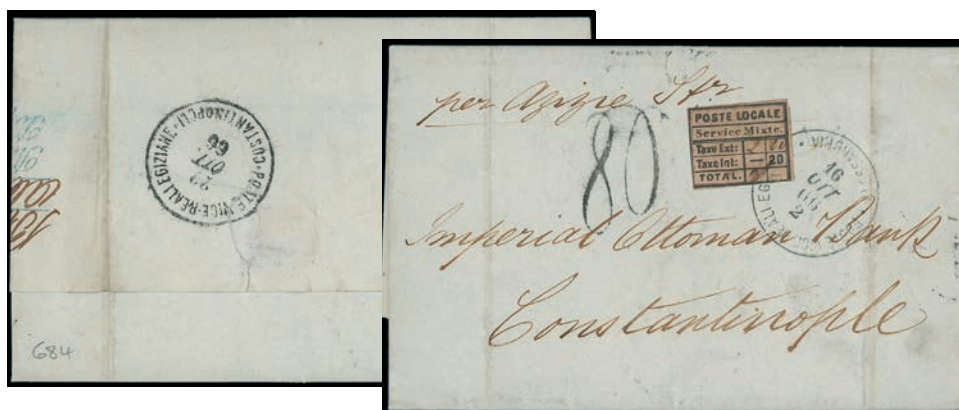 POSTE VICE-REALI EGIZIANE
COSTANTINOPOLI
29
OTT
66
684
per Azizie Str
80
POSTE LOCALE
Service Mixte.
Taxe Ext:
Taxe Int: — 20
TOTAL.
16
OTT
66
2
Imperial Ottoman Bank
Constantinople